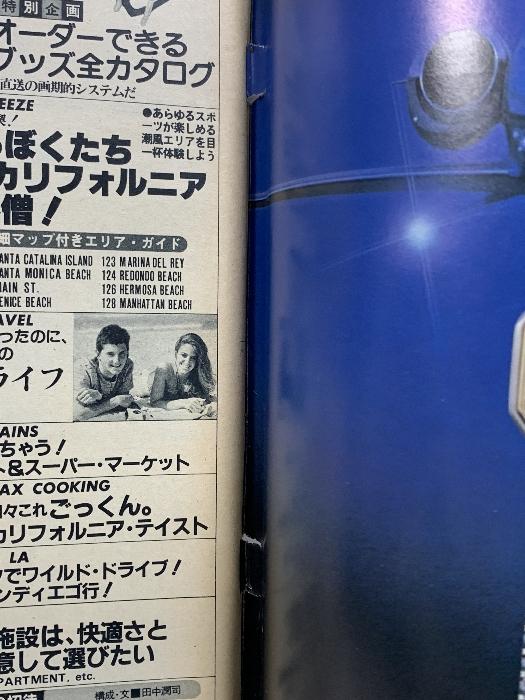 特別企画
オーダーできる
グッズ全カタログ
直送の画期的システムだ
EEZE
●あらゆるスポ
ーツが楽しめる
潮風エリアを目
一杯体験しよう
ぼくたち
カリフォルニア
僧！
細マップ付きエリア・ガイド
ANTA CATALINA ISLAND 123 MARINA DEL REY
ANTA MONICA BEACH 124 REDONDO BEACH
AIN ST. 126 HERMOSA BEACH
ENICE BEACH 128 MANHATTAN BEACH
AVEL
ったのに、
の
ライフ
AINS
ちゃう！
&スーパー・マーケット
AX COOKING
々これごっくん。
カリフォルニア・テイスト
LA
でワイルド・ドライブ！
ンディエゴ行！
施設は、快適さと
意して選びたい
PARTMENT, etc.
構成・文■田中潤司